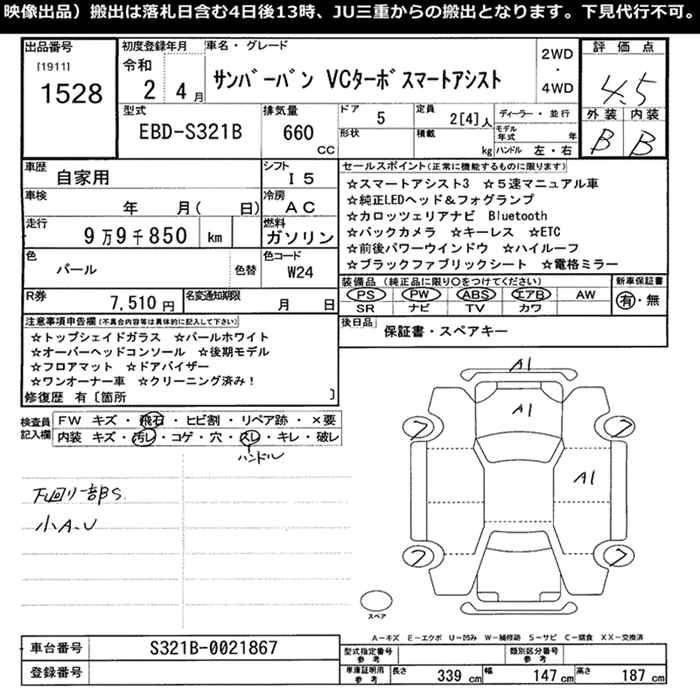 映像出品）搬出は落札日含む4日後13時、JU三重からの搬出となります。下見代行不可。
出品番号
[1911]
1528
初度登録年月
令和
2 4月
車名・グレード
サンバーバン VCターボスマートアシスト
2WD
・
4WD
評価点
4.5
外装 内装
B B
型式
EBD-S321B
排気量
660
cc
ドア
5
定員
2[4]人
形状
積載
kg
ディーラー・並行
モデル年式 年
ハンドル 左・右
車歴
自家用
シフト
I5
車検
年 月( 日)
冷房
AC
走行
9万9千850 km
燃料
ガソリン
色
パール
色替
色コード
W24
R券
7,510円
名変通知期限
月 日
セールスポイント(正常に機能するものに限ります)
☆スマートアシスト3 ☆5速マニュアル車
☆純正LEDヘッド&フォグランプ
☆カロッツェリアナビ Bluetooth
☆バックカメラ ☆キーレス ☆ETC
☆前後パワーウインドウ ☆ハイルーフ
☆ブラックファブリックシート ☆電格ミラー
装備品(純正品に限り○をつけてください)
PS PW ABS エアB AW
SR ナビ TV カワ
新車保証書
有・無
後日品
保証書・スペアキー
注意事項申告欄(不具合内容等は具体的に記入して下さい)
☆トップシェイドガラス ☆パールホワイト
☆オーバーヘッドコンソール ☆後期モデル
☆フロアマット ☆ドアバイザー
☆ワンオーナー車 ☆クリーニング済み!
修復歴 有〔箇所 〕
検査員記入欄
FW キズ・飛石・ヒビ割・リペア跡・×要
内装 キズ・汚レ・コゲ・穴・スレ・キレ・破レ
ハンドル
下回り一部S
小A-U
A1
A1
A1
スペア
A−キズ E−エクボ U−凹み W−補修跡 S−サビ C−腐食 XX−交換済
車台番号
S321B-0021867
登録番号
型式指定番号
参考
類別区分番号
参考
車庫証明用
参考
長さ 339cm 幅 147cm 高さ 187cm